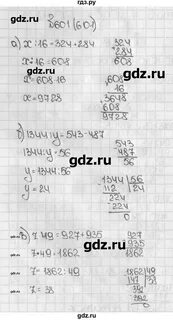 №601 (601)
а) x:16=324+284
324
284
608
x:16=608
x=608·16
608
16
3648
608
9728
x=9728
б) 1344:y=543-487
543
487
56
1344:y=56
y=1344:56
y=24
1344 56
112 24
224
224
0
в) z:49=927+935
927
935
1862
z·49=1862
z=1862:49
1862 49
147 38
392
392
0
z=38
gdz.ru
gdz.ru
gdz.ru
gdz.ru
gdz.ru
gdz.ru
gdz.ru